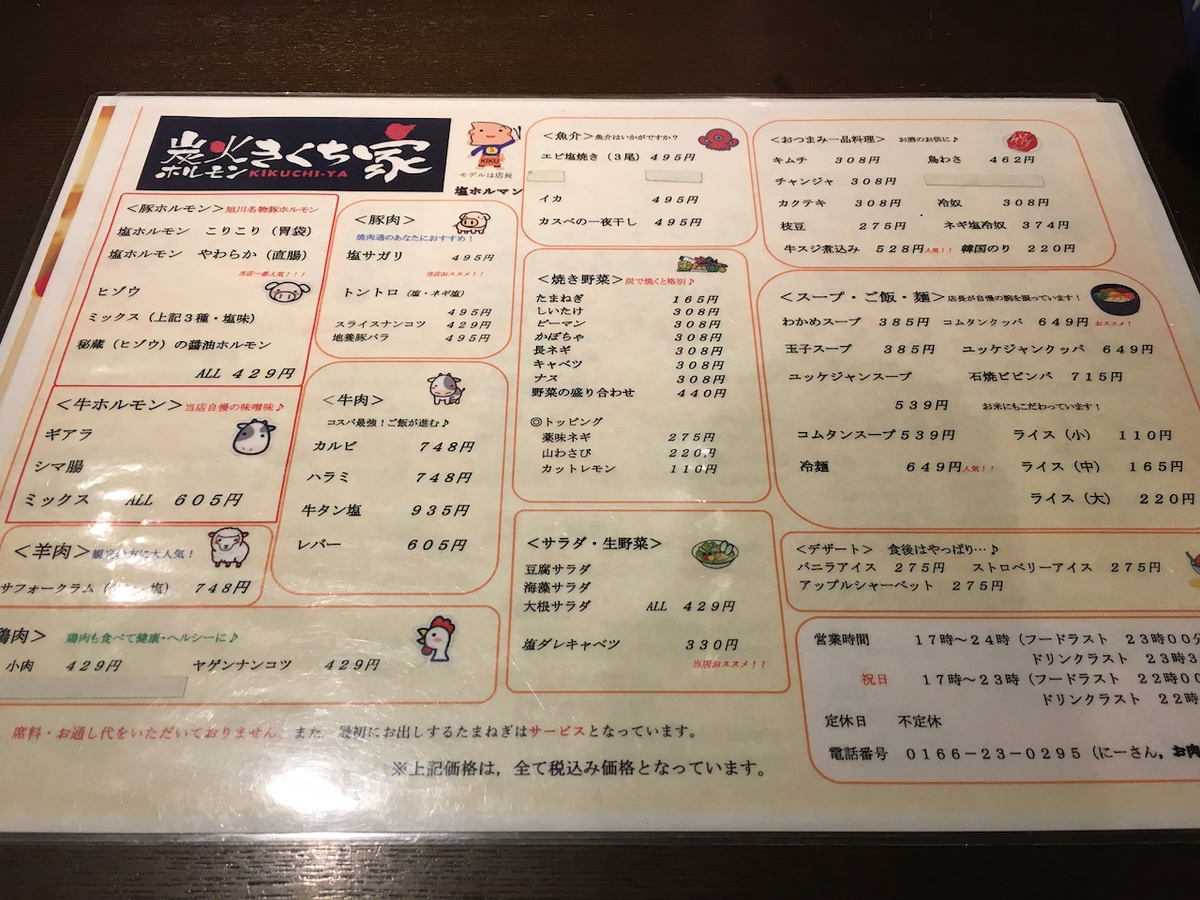 炭火きくち家
ホルモン KIKUCHI-YA
KIKU
モデルは店長
塩ホルマン
＜豚ホルモン＞旭川名物豚ホルモン
塩ホルモン こりこり（胃袋）
塩ホルモン やわらか（直腸）
当店一番人気！！！
ヒゾウ
ミックス（上記３種・塩味）
秘蔵（ヒゾウ）の醤油ホルモン
ALL ４２９円
＜牛ホルモン＞当店自慢の味噌味♪
ギアラ
シマ腸
ミックス ALL ６０５円
＜羊肉＞ 方に大人気！
サフォークラム（ 塩） ７４８円
鶏肉＞ 鶏肉も食べて健康・ヘルシーに♪
小肉 ４２９円 ヤゲンナンコツ ４２９円
＜豚肉＞
焼肉通のあなたにおすすめ！
塩サガリ ４９５円
当店おススメ！！
トントロ（塩・ネギ塩）
４９５円
スライスナンコツ ４２９円
地養豚バラ ４９５円
＜牛肉＞
コスパ最強！ご飯が進む♪
カルビ ７４８円
ハラミ ７４８円
牛タン塩 ９３５円
レバー ６０５円
＜魚介＞魚介はいかがですか？
エビ塩焼き（３尾）４９５円
イカ ４９５円
カスベの一夜干し ４９５円
＜焼き野菜＞炭で焼くと格別♪
たまねぎ １６５円
しいたけ ３０８円
ピーマン ３０８円
かぼちゃ ３０８円
長ネギ ３０８円
キャベツ ３０８円
ナス ３０８円
野菜の盛り合わせ ４４０円
◎トッピング
薬味ネギ ２７５円
山わさび ２２０円
カットレモン １１０円
＜サラダ・生野菜＞
豆腐サラダ
海藻サラダ
大根サラダ ALL ４２９円
塩ダレキャベツ ３３０円
当店おススメ！！
＜おつまみ一品料理＞ お酒のお供に♪
キムチ ３０８円 鳥わさ ４６２円
チャンジャ ３０８円
カクテキ ３０８円 冷奴 ３０８円
枝豆 ２７５円 ネギ塩冷奴 ３７４円
牛スジ煮込み ５２８円人気！！ 韓国のり ２２０円
＜スープ・ご飯・麺＞店長が自慢の腕を振っています！
わかめスープ ３８５円 コムタンクッパ ６４９円おススメ！
玉子スープ ３８５円 ユッケジャンクッパ ６４９円
ユッケジャンスープ 石焼ビビンバ ７１５円
５３９円 お米にもこだわっています！
コムタンスープ５３９円 ライス（小） １１０円
冷麺 ６４９円人気！！ ライス（中） １６５円
ライス（大） ２２０円
＜デザート＞ 食後はやっぱり…♪
バニラアイス ２７５円 ストロベリーアイス ２７５円
アップルシャーベット ２７５円
営業時間 １７時～２４時（フードラスト ２３時００分
ドリンクラスト ２３時３
祝日 １７時～２３時（フードラスト ２２時００
ドリンクラスト ２２時
定休日 不定休
電話番号 ０１６６－２３－０２９５（にーさん，お肉
席料・お通し代をいただいておりません。また，最初にお出しするたまねぎはサービスとなっています。
※上記価格は，全て税込み価格となっています。